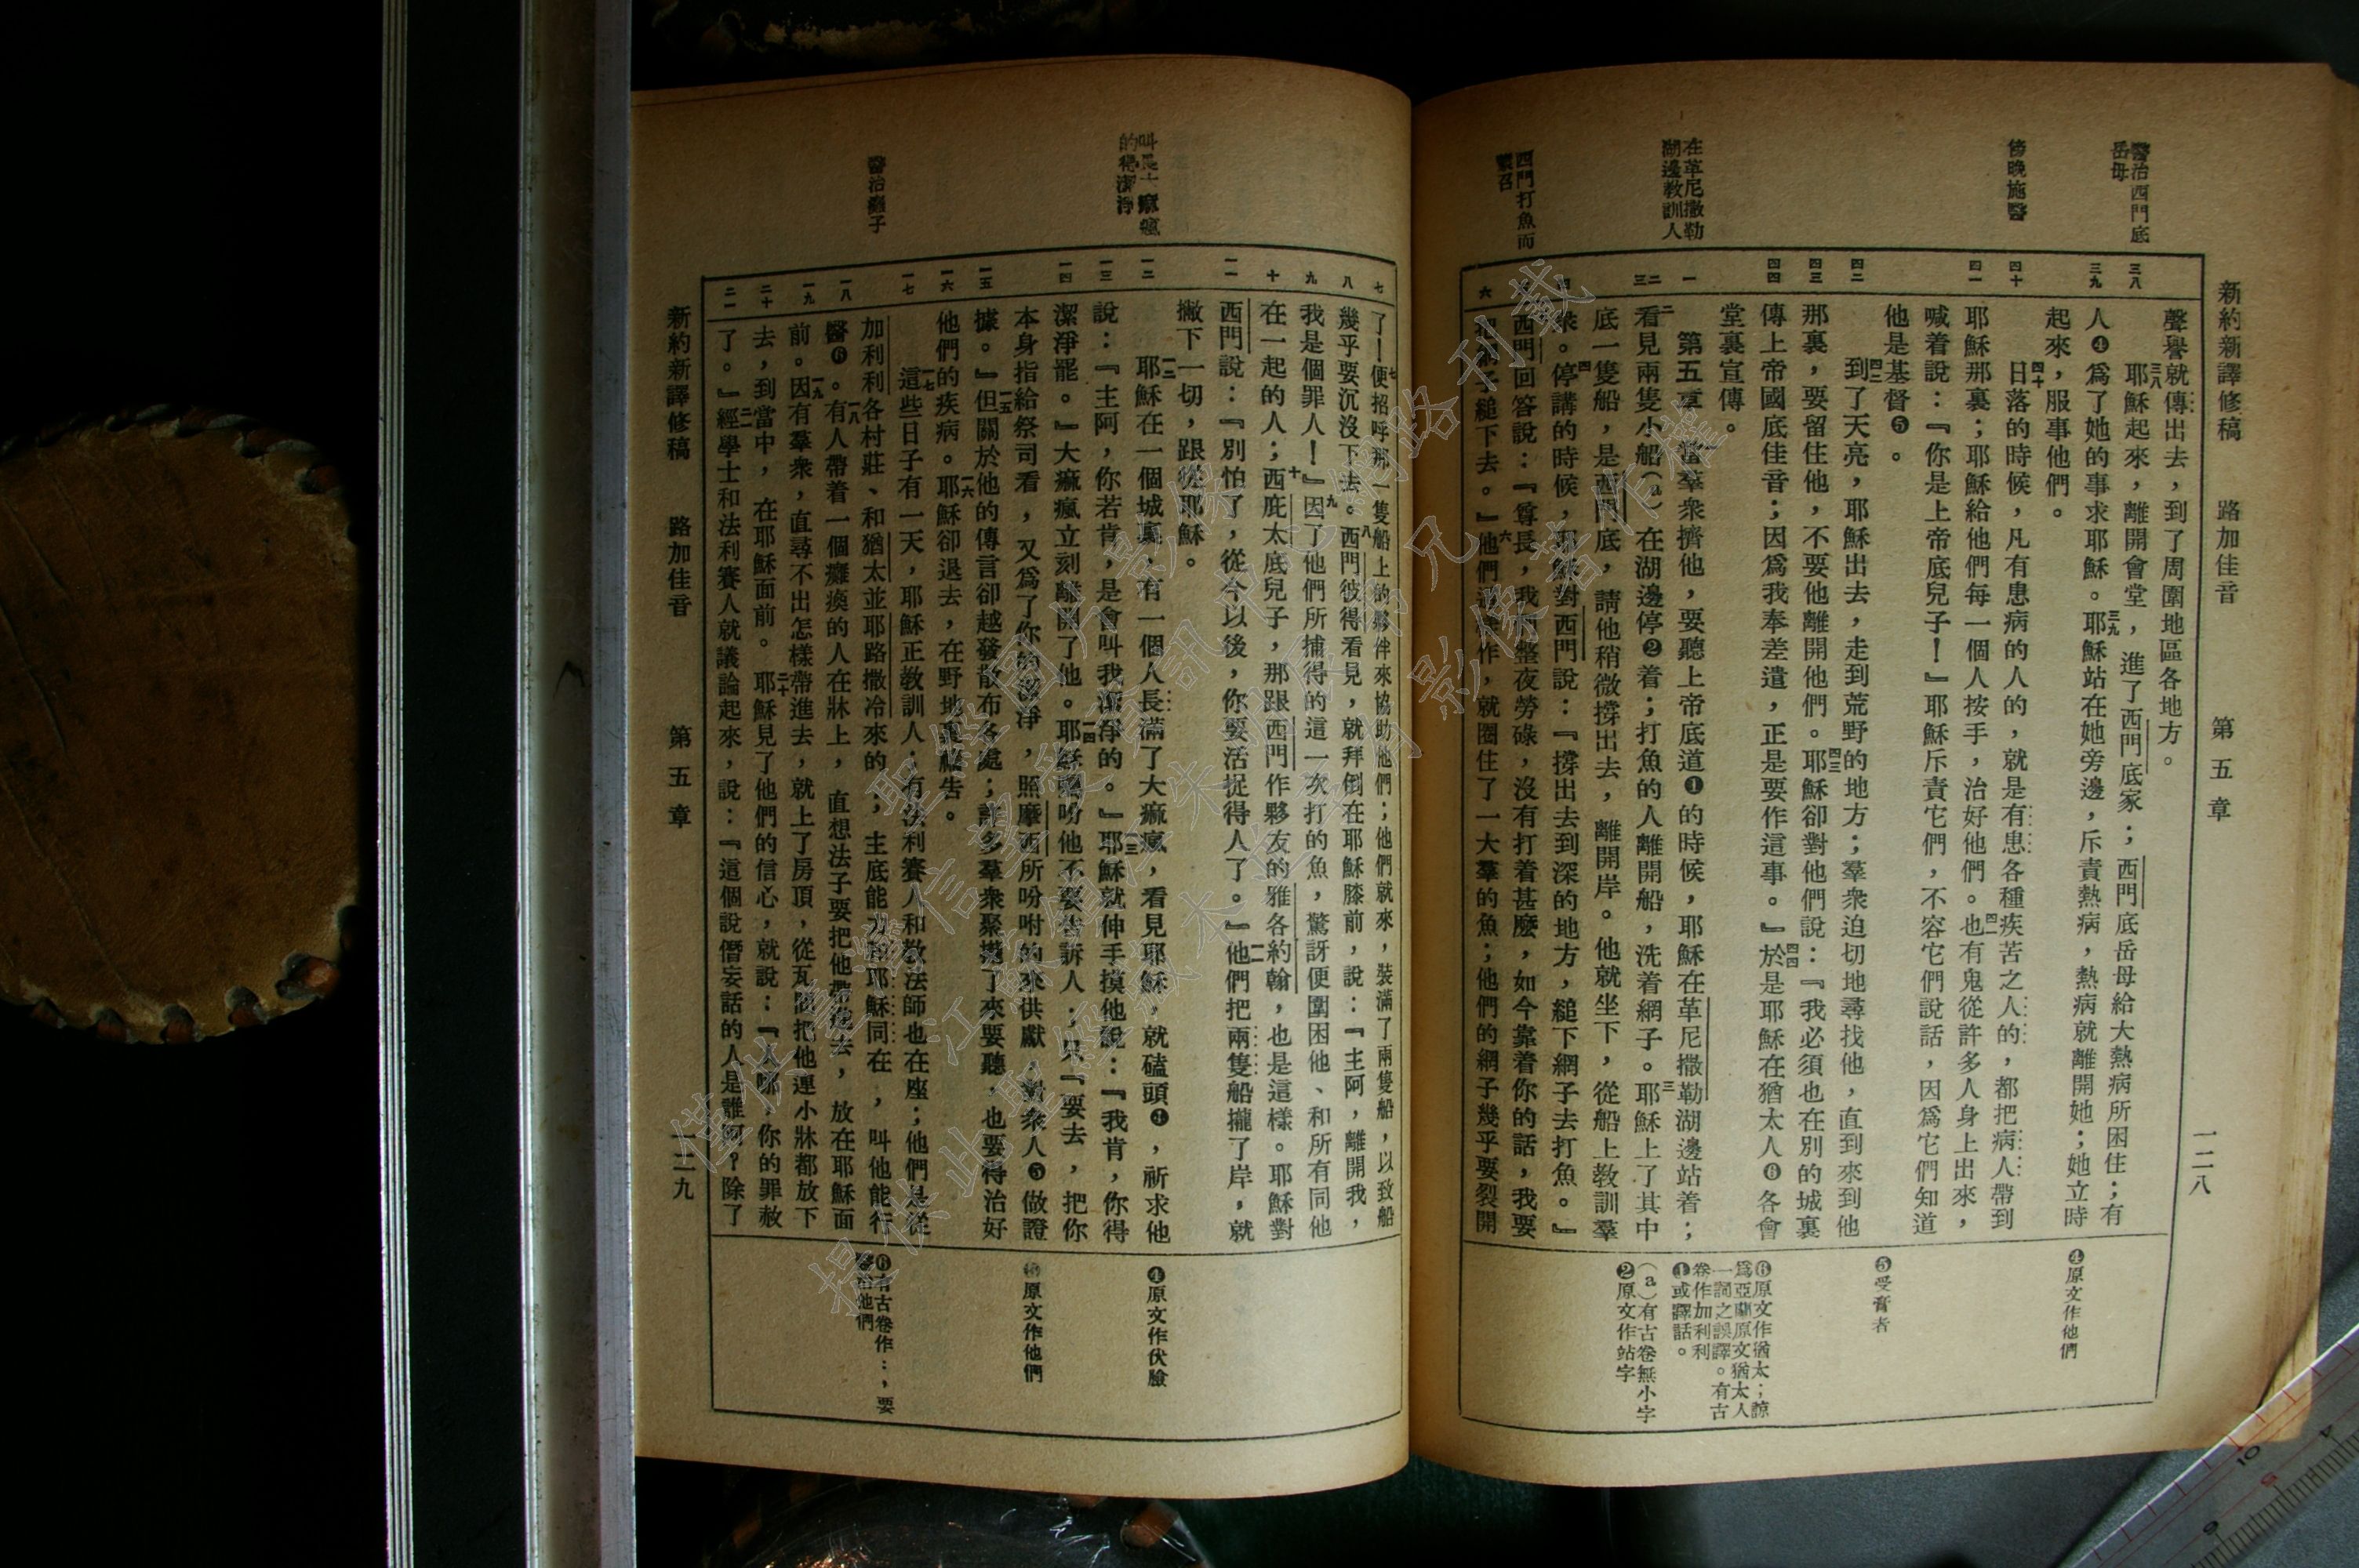 新約新譯修稿　路加佳音　第五章　一二八
醫治西門底
岳母
傍晚施醫
在革尼撒勒
湖邊教訓人
西門打魚而
蒙召
聲譽就傳出去，到了周圍地區各地方。
三八耶穌起來，離開會堂，進了西門底家；西門底岳母給大熱病所困住；有
人❹爲了她的事求耶穌。三九耶穌站在她旁邊，斥責熱病，熱病就離開她；她立時
起來，服事他們。
四十日落的時候，凡有患病的人的，就是有患各種疾苦之人的，都把病人帶到
耶穌那裏；耶穌給他們每一個人按手，治好他們。四一也有鬼從許多人身上出來，
喊着說：『你是上帝底兒子！』耶穌斥責它們，不容它們說話，因爲它們知道
他是基督❺。
四二到了天亮，耶穌出去，走到荒野的地方；羣衆迫切地尋找他，直到來到他
那裏，要留住他，不要他離開他們。四三耶穌卻對他們說：『我必須也在別的城裏
傳上帝國底佳音；因爲我奉差遣，正是要作這事。』四四於是耶穌在猶太人❻各會
堂裏宣傳。
第五章　一當羣衆擠他，要聽上帝底道❶的時候，耶穌在革尼撒勒湖邊站着；
二看見兩隻小船（a）在湖邊停❷着；打魚的人離開船，洗着網子。三耶穌上了其中
底一隻船，是西門底，請他稍微撐出去，離開岸。他就坐下，從船上教訓羣
衆。四停講的時候，耶穌對西門說：『撐出去到深的地方，縋下網子去打魚。』
西門回答說：『尊長，我們整夜勞碌，沒有打着甚麼，如今靠着你的話，我要
把網子縋下去。』六他們這樣作，就圈住了一大羣的魚；他們的網子幾乎要裂開
❹原文作他們
❺受膏者
❻原文作猶太；諒
爲亞蘭原文猶太人
一詞之誤譯。有古
卷作加利利
❶或譯話。
（a）有古卷無小字
❷原文作站字
叫長大痲瘋
的得潔淨
醫治癱子
了！七便招呼那一隻船上的夥伴來協助他們；他們就來，裝滿了兩隻船，以致船
幾乎要沉沒下去。八西門彼得看見，就拜倒在耶穌膝前，說：『主阿，離開我，
我是個罪人！』九因了他們所捕得的這一次打的魚，驚訝便圍困他、和所有同他
在一起的人；十西庇太底兒子，那跟西門作夥友的雅各約翰，也是這樣。耶穌對
西門說：『別怕了，從今以後，你要活捉得人了。』一一他們把兩隻船攏了岸，就
撇下一切，跟從耶穌。
一二耶穌在一個城裏，有一個人長滿了大痲瘋，看見耶穌，就磕頭❹，祈求他
說：『主阿，你若肯，是會叫我潔淨的。』一三耶穌就伸手摸他說：『我肯，你得
潔淨罷。』大痲瘋立刻離開了他。一四耶穌囑吩他不要告訴人；只『要去，把你
本身指給祭司看，又爲了你的潔淨，照摩西所吩咐的來供獻，對衆人❺做證
據。』一五但關於他的傳言卻越發散布各處；許多羣衆聚攏了來要聽，也要得治好
他們的疾病。一六耶穌卻退去，在野地裏禱告。
一七這些日子有一天，耶穌正教訓人；有法利賽人和教法師也在座；他們是從
加利利各村莊、和猶太並耶路撒冷來的；主底能力和耶穌同在，叫他能行
醫❻。一八有人帶着一個癱瘓的人在牀上，直想法子要把他帶進去，放在耶穌面
前。一九因有羣衆，直尋不出怎樣帶進去，就上了房頂，從瓦間把他連小牀都放下
去，到當中，在耶穌面前。二十耶穌見了他們的信心，就說：『人哪，你的罪赦
了。』二一經學士和法利賽人就議論起來，說：『這個說僭妄話的人是誰阿？除了
❹原文作伏臉
❺原文作他們
❻有古卷作：，要
醫治他們
新約新譯修稿　路加佳音　第五章　一二九